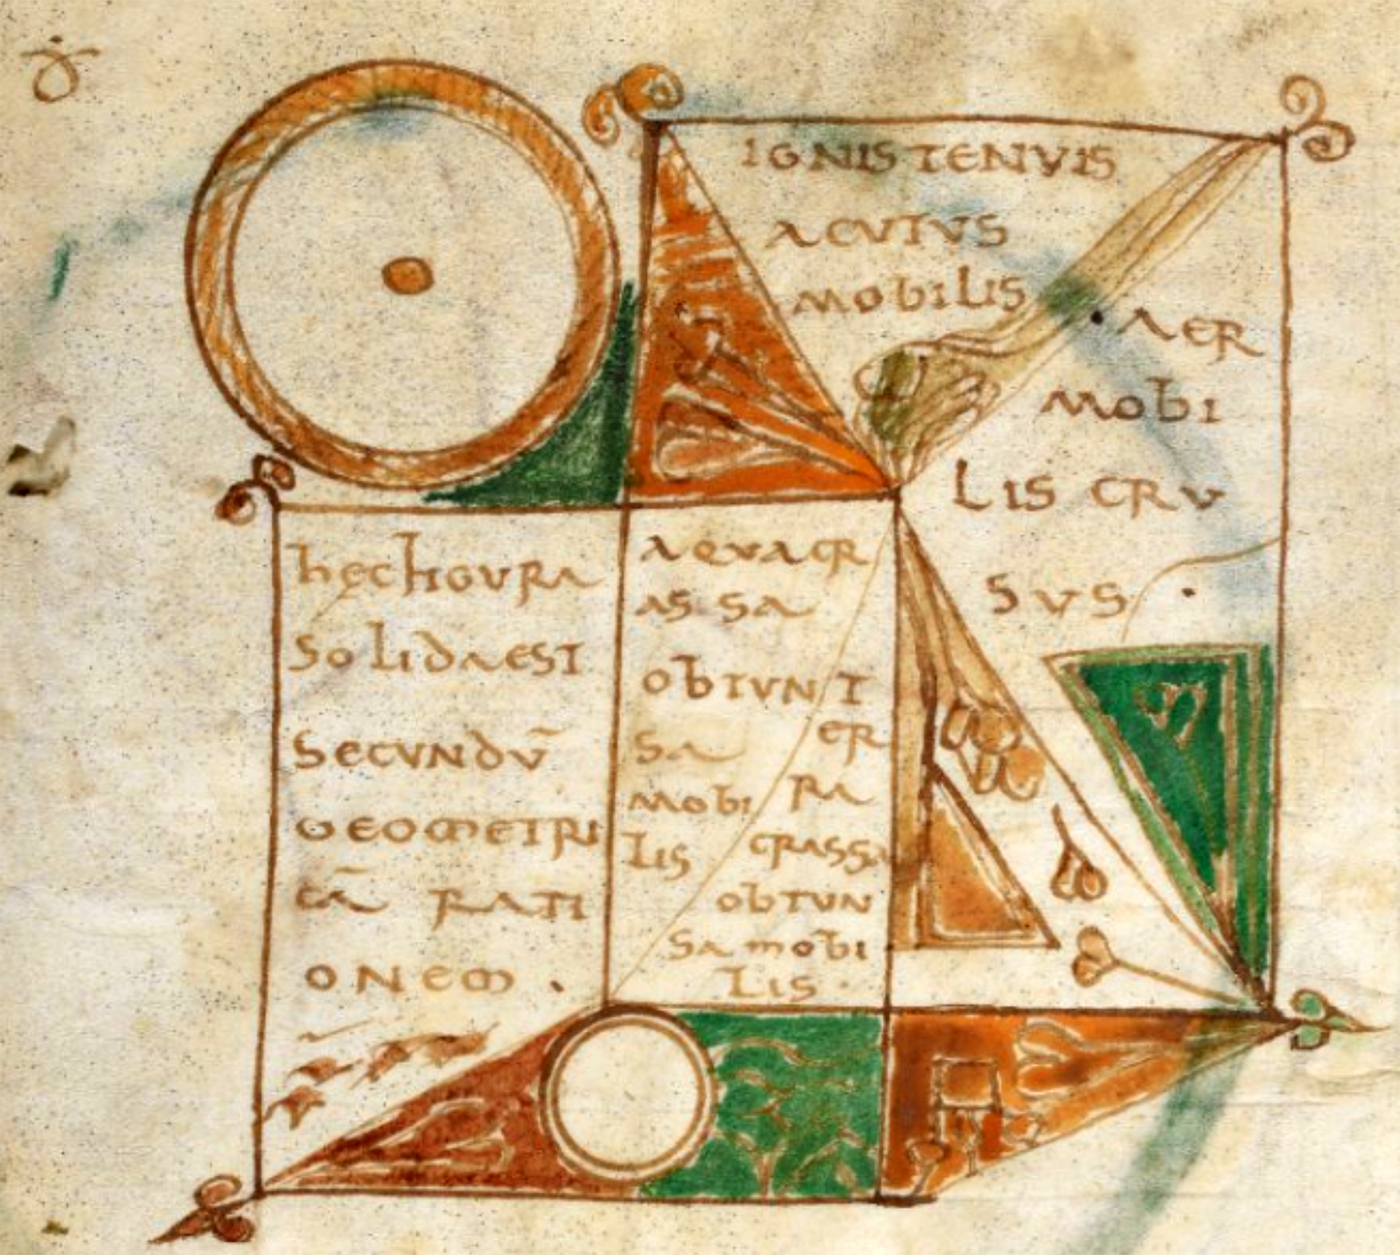 IGNIS TENVIS
ACVTVS
MOBILIS
AER
MOBI
LIS CRV
SVS
hęc FIGVRA
SOLIDA EST
SECVNDV̄
GEOMETRI
CĀ RATI
ONEM .
AQVA CR
AS SA
OBTVN
SA
MOBI
LIS
T
ER
RA
CRASSA
OBTVN
SA mobi
LIS .